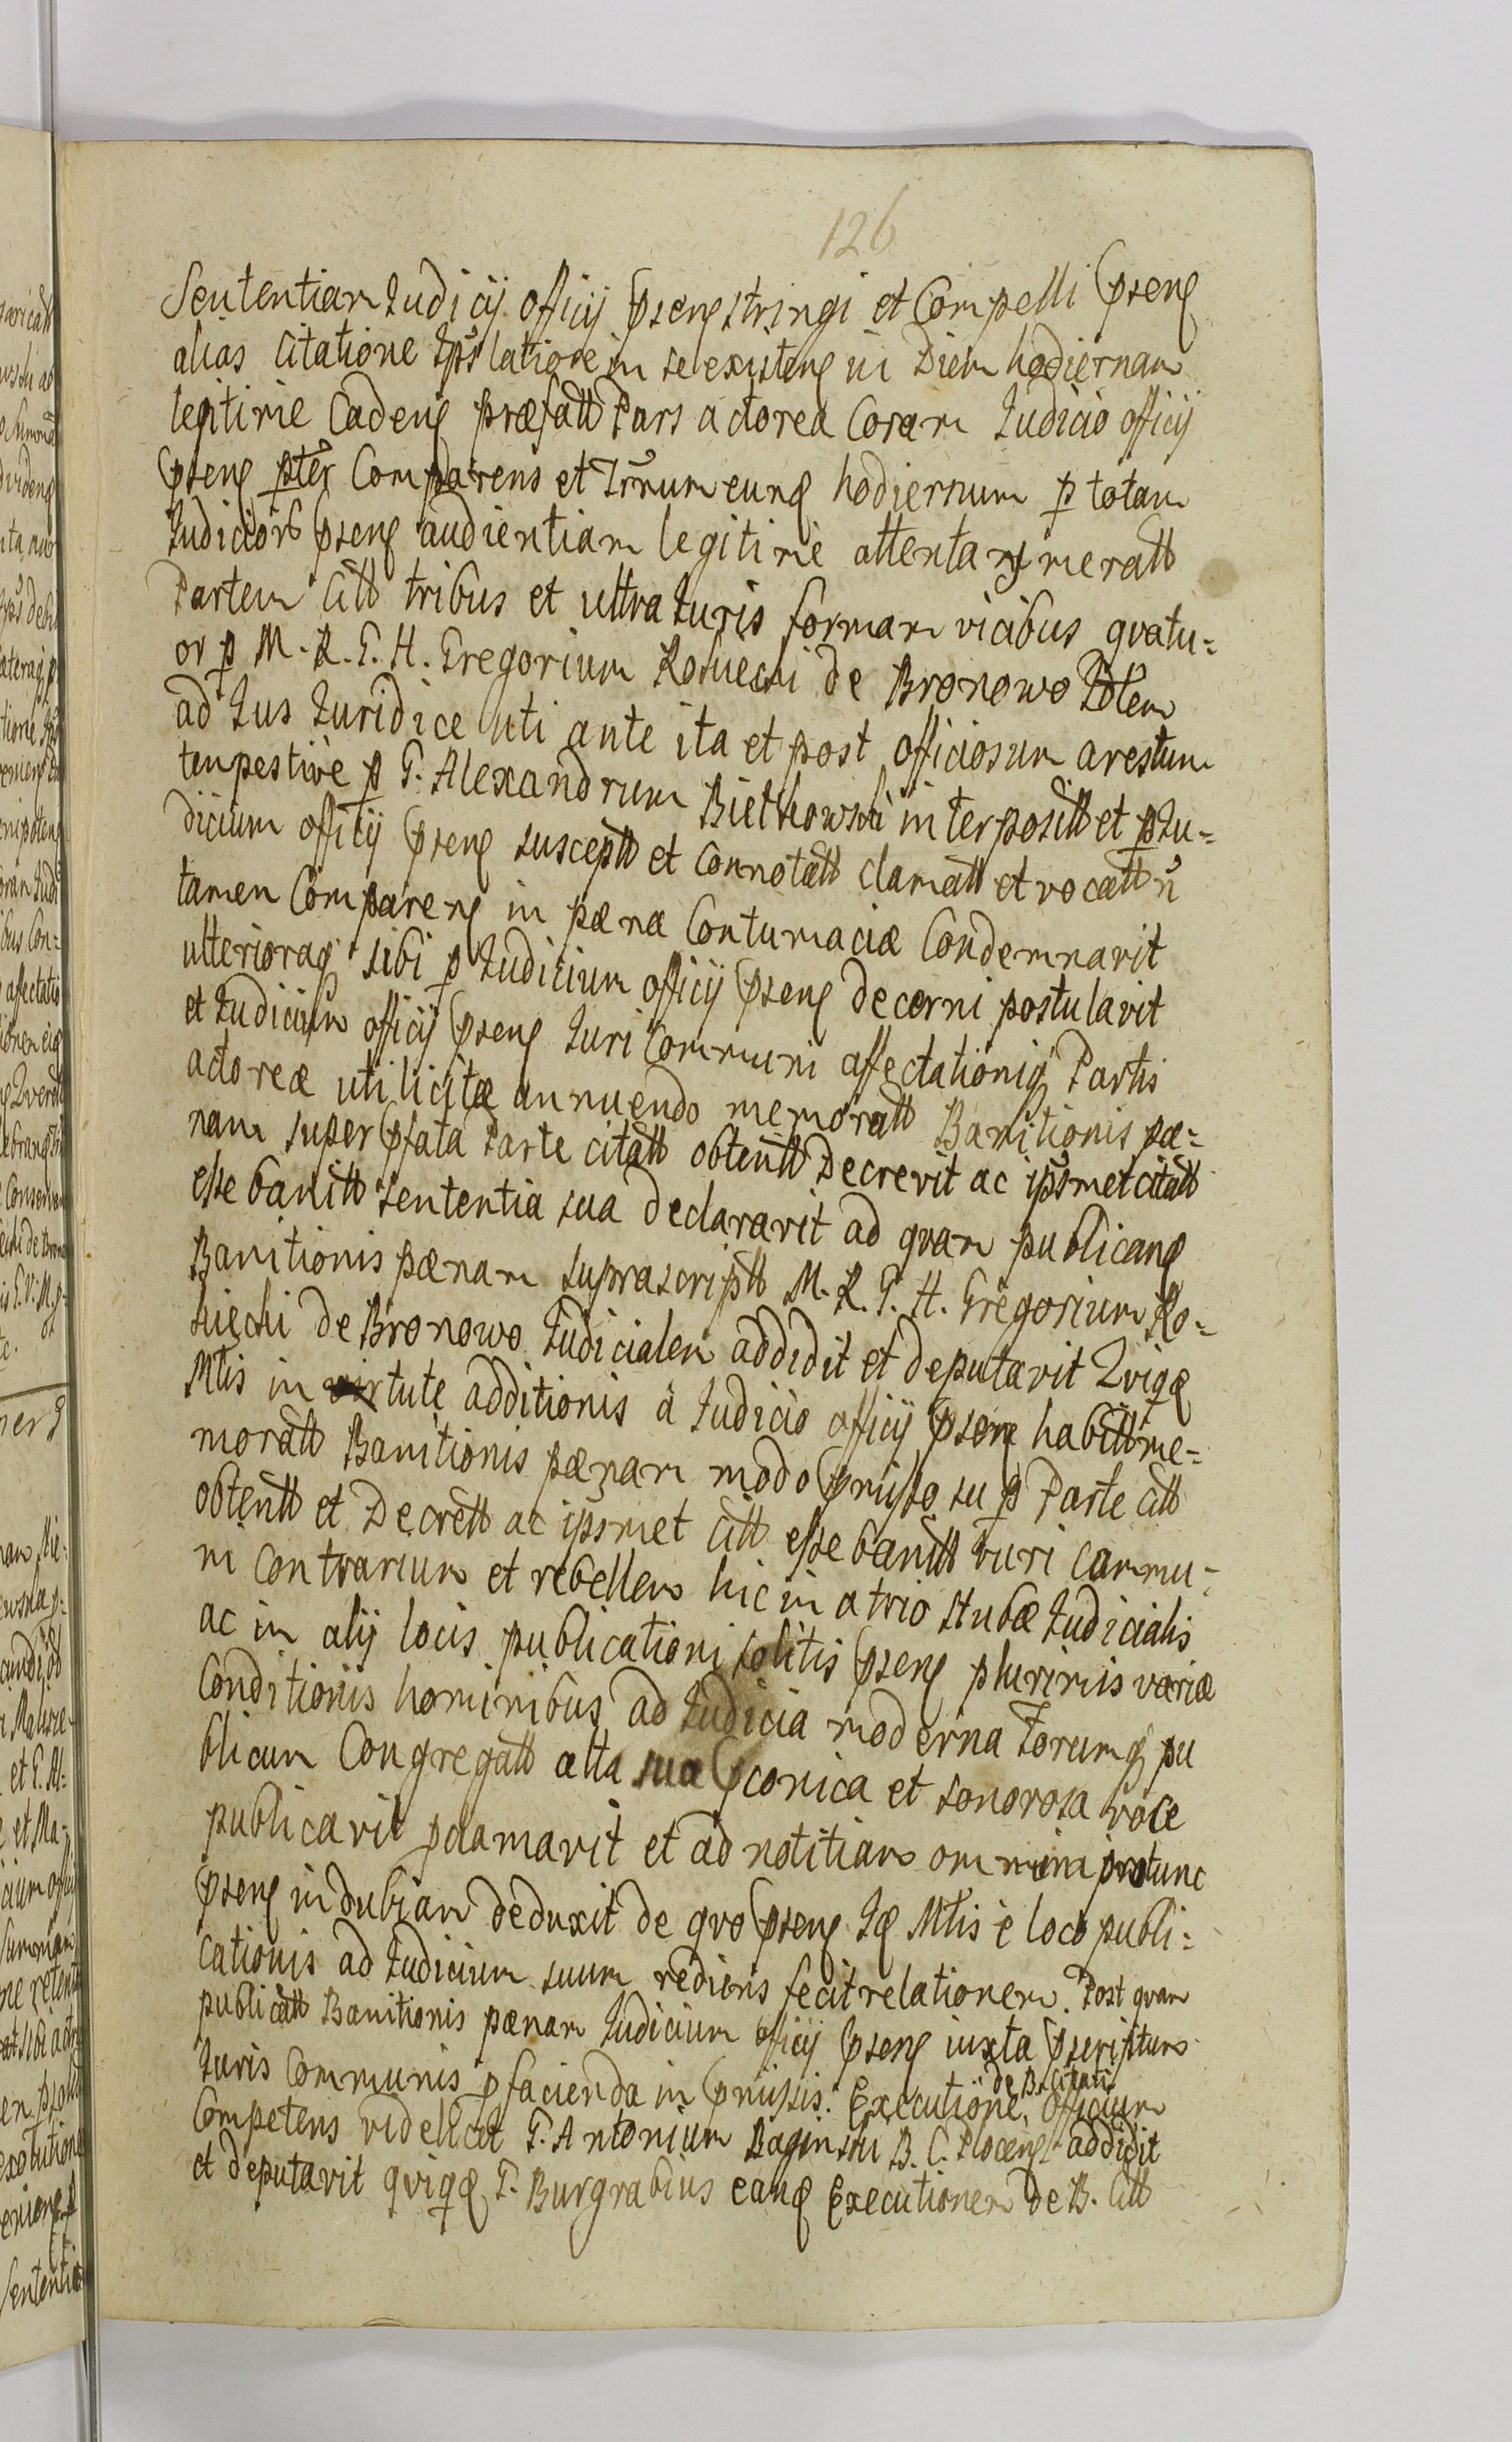 126
Sententiam Judicij officij psens stringi et Compelli psens
alias Citatione Ips latiore in se existens in Diem hodiernam
legitime Cadens præfatt Pars actorea Coram Judicio officij
psens pter Comparens et Trnum eund hodiernum p totam
Judiciorb psens audientiam legitime attentan meratt
Partem Citt tribus et ultra Juris formam vicibus qvatu=
or p M. R. G. H. Gregorium Kosueski de Bronowo Jdlem
ad Jus Juridice uti ante ita et post officiosum arestum
tempestive p G. Alexandrum Bietkowski interpositt et p Ju=
dicium officij psens susceptt et Connotatt clamatt et vocatt n
tamen Comparens in pæna Contumaciæ Condemnavit
ulterioraq sibi p Judicium officij psens decerni postulavit
et Judicium officij psens Juri Communi affectationiq Partis
actoreæ uti licitæ annuendo memoratt Banitionis pæ=
nam super pfata Parte citatt obtentt Decrevit ac ipsmet citatt
esse banitt sententia sua declaravit ad qvam publicand
Banitionis pænam suprascriptt M. R. G. H. Gregorium Ko=
siieski de Bronowo Judicialem addidit et deputavit Qviqæ
Mtis in virtute additionis a Judicio officij psens habitt me=
moratt Banitionis pænam modo pmisso su p Parte citt
obtentt et Decrett ac ipsmet citt esse banitt Juri Commu=
ni contrarium et rebellem hic in atrio stubæ Judicialis
ac in alijs locis publicationi solitis psens plurimis variæ
Conditionis hominibus ad Judicia moderna Forumq pu
blicum Congregatt alta sua pconica et sonorosa voce
publicavit pclamavit et ad notitiam omnium protunc
psens indubiam deduxit de qvo psens Jd Mtis e loco publi=
cationis ad Judicium suum rediens fecit relationem. Post qvam
publicatt Banitionis pænam Judicium officij psens iuxta pscriptum
Juris Communis p facienda in pmissis. Executione, de B. Citati officium
Competens videlicet G. Antonium Baginski B. C. Plocens addidit
et deputavit qviqæ G. Burgrabius eand Executionem de B. Citt